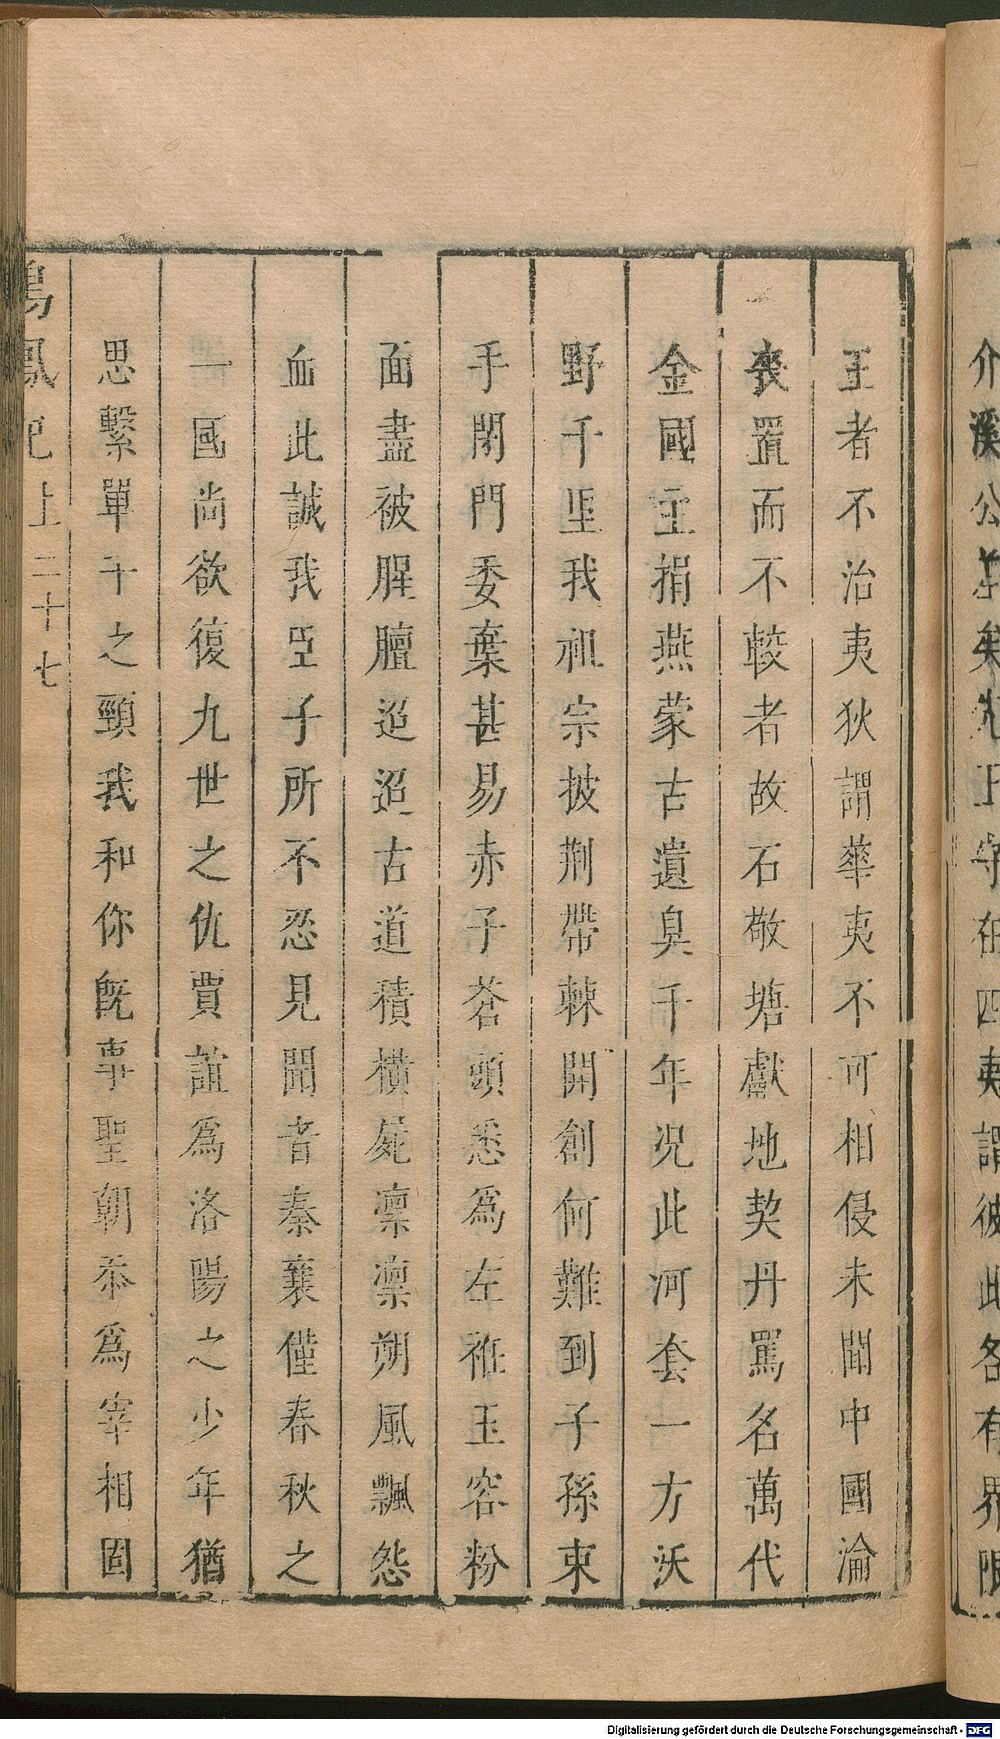 介溪公差矣先王守在四夷謂彼此各有界限
王者不治夷狄謂華夷不可相侵未聞中國淪
喪置而不較者故石敬塘獻地契丹罵名萬代
金國主捐燕蒙古遺臭千年况此河套一方沃
野千里我祖宗披荆帶棘開創何難到子孫束
手閉門委棄甚易赤子蒼頭悉爲左袵玉容粉
面盡被腥膻迢迢古道積橫屍凛凛朔風飄怨
血此誠我臣子所不忍見聞者秦襄僅春秋之
一國尚欲復九世之仇賈誼爲洛陽之少年猶
思繫單于之頸我和你旣事聖朝忝爲宰相固
鳴鳳記上二十七
Digitalisierung gefördert durch die Deutsche Forschungsgemeinschaft - DFG